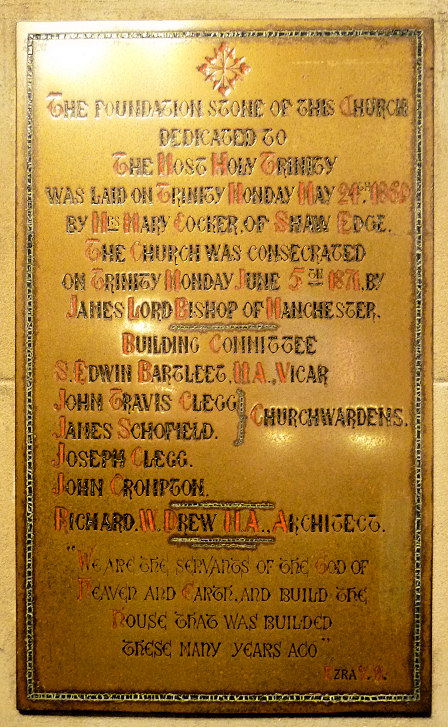 THE FOUNDATION STONE OF THIS CHURCH
DEDICATED TO
THE MOST HOLY TRINITY
WAS LAID ON TRINITY MONDAY MAY 24TH. 1869
BY MRS MARY COCKER, OF SHAW EDGE.
THE CHURCH WAS CONSECRATED
ON TRINITY MONDAY JUNE 5TH 1871. BY
JAMES LORD BISHOP OF MANCHESTER.
BUILDING COMMITTEE
S. EDWIN BARTLEET, M.A., VICAR
JOHN TRAVIS CLEGG
JAMES SCHOFIELD.
CHURCHWARDENS.
JOSEPH CLEGG.
JOHN CROMPTON.
RICHARD. W. DREW M.A., ARCHITECT.
"WE ARE THE SERVANTS OF THE GOD OF
HEAVEN AND EARTH, AND BUILD THE
HOUSE THAT WAS BUILDED
THESE MANY YEARS AGO"
EZRA